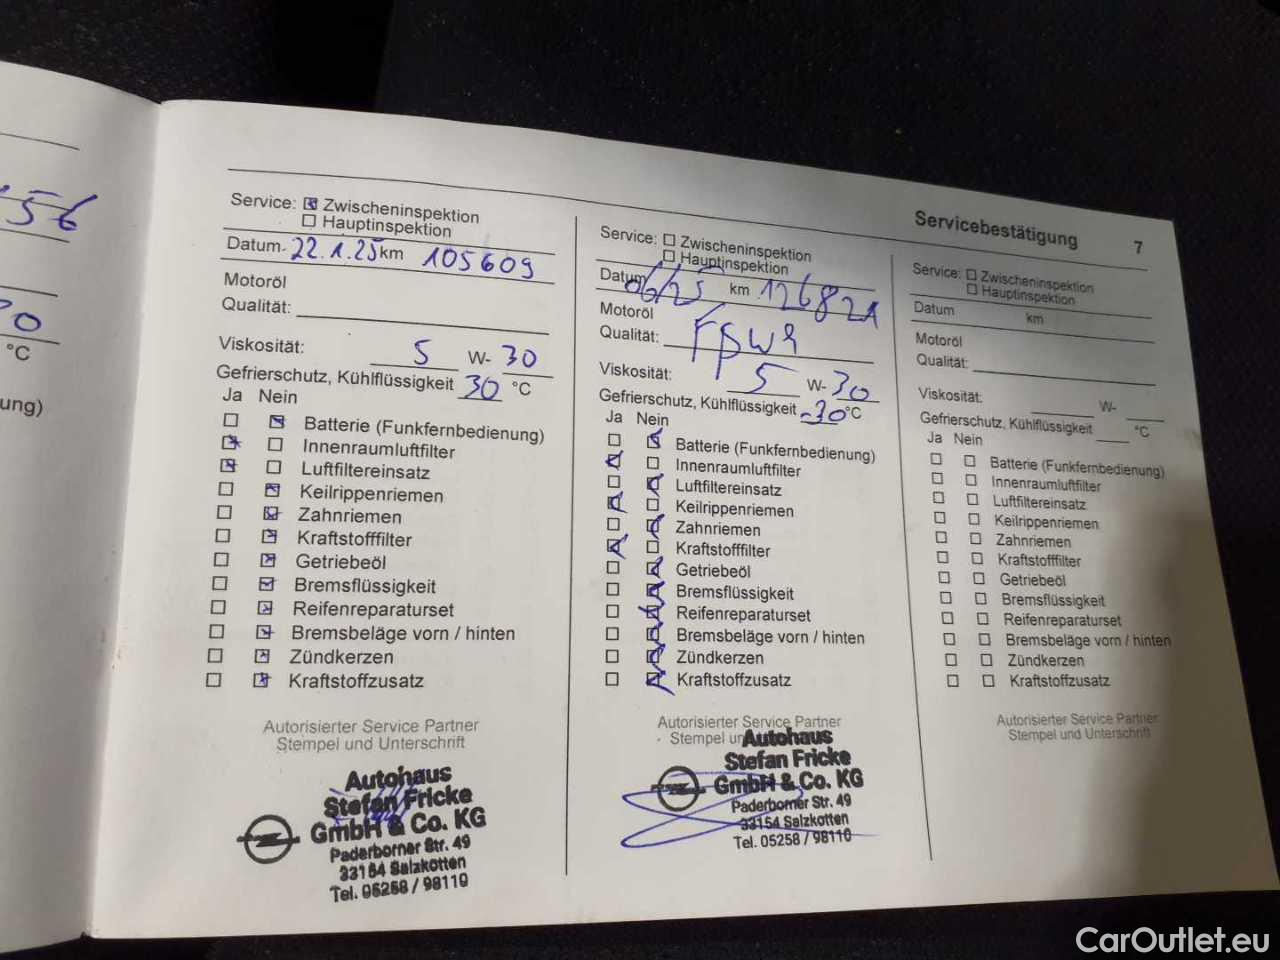 156
°C
ung)
Servicebestätigung 7
Service: Zwischeninspektion
Hauptinspektion
Datum 22.1.25 km 105609
Motoröl
Qualität:
Viskosität: 5 W- 30
Gefrierschutz, Kühlflüssigkeit 30 °C
Ja Nein
Batterie (Funkfernbedienung)
Innenraumluftfilter
Luftfiltereinsatz
Keilrippenriemen
Zahnriemen
Kraftstofffilter
Getriebeöl
Bremsflüssigkeit
Reifenreparaturset
Bremsbeläge vorn / hinten
Zündkerzen
Kraftstoffzusatz
Autorisierter Service Partner
Stempel und Unterschrift
Autohaus
Stefan Fricke
GmbH & Co. KG
Paderborner Str. 49
33154 Salzkotten
Tel. 05258 / 98110
Service: Zwischeninspektion
Hauptinspektion
Datum 06/25 km 126821
Motoröl
Qualität:
Viskosität: 5 W- 30
Gefrierschutz, Kühlflüssigkeit -30 °C
Ja Nein
Batterie (Funkfernbedienung)
Innenraumluftfilter
Luftfiltereinsatz
Keilrippenriemen
Zahnriemen
Kraftstofffilter
Getriebeöl
Bremsflüssigkeit
Reifenreparaturset
Bremsbeläge vorn / hinten
Zündkerzen
Kraftstoffzusatz
Autorisierter Service Partner
Stempel un
Autohaus
Stefan Fricke
GmbH & Co. KG
Paderborner Str. 49
33154 Salzkotten
Tel. 05258 / 98110
Service: Zwischeninspektion
Hauptinspektion
Datum km
Motoröl
Qualität:
Viskosität: W-
Gefrierschutz, Kühlflüssigkeit °C
Ja Nein
Batterie (Funkfernbedienung)
Innenraumluftfilter
Luftfiltereinsatz
Keilrippenriemen
Zahnriemen
Kraftstofffilter
Getriebeöl
Bremsflüssigkeit
Reifenreparaturset
Bremsbeläge vorn / hinten
Zündkerzen
Kraftstoffzusatz
Autorisierter Service Partner
Stempel und Unterschrift
CarOutlet.eu